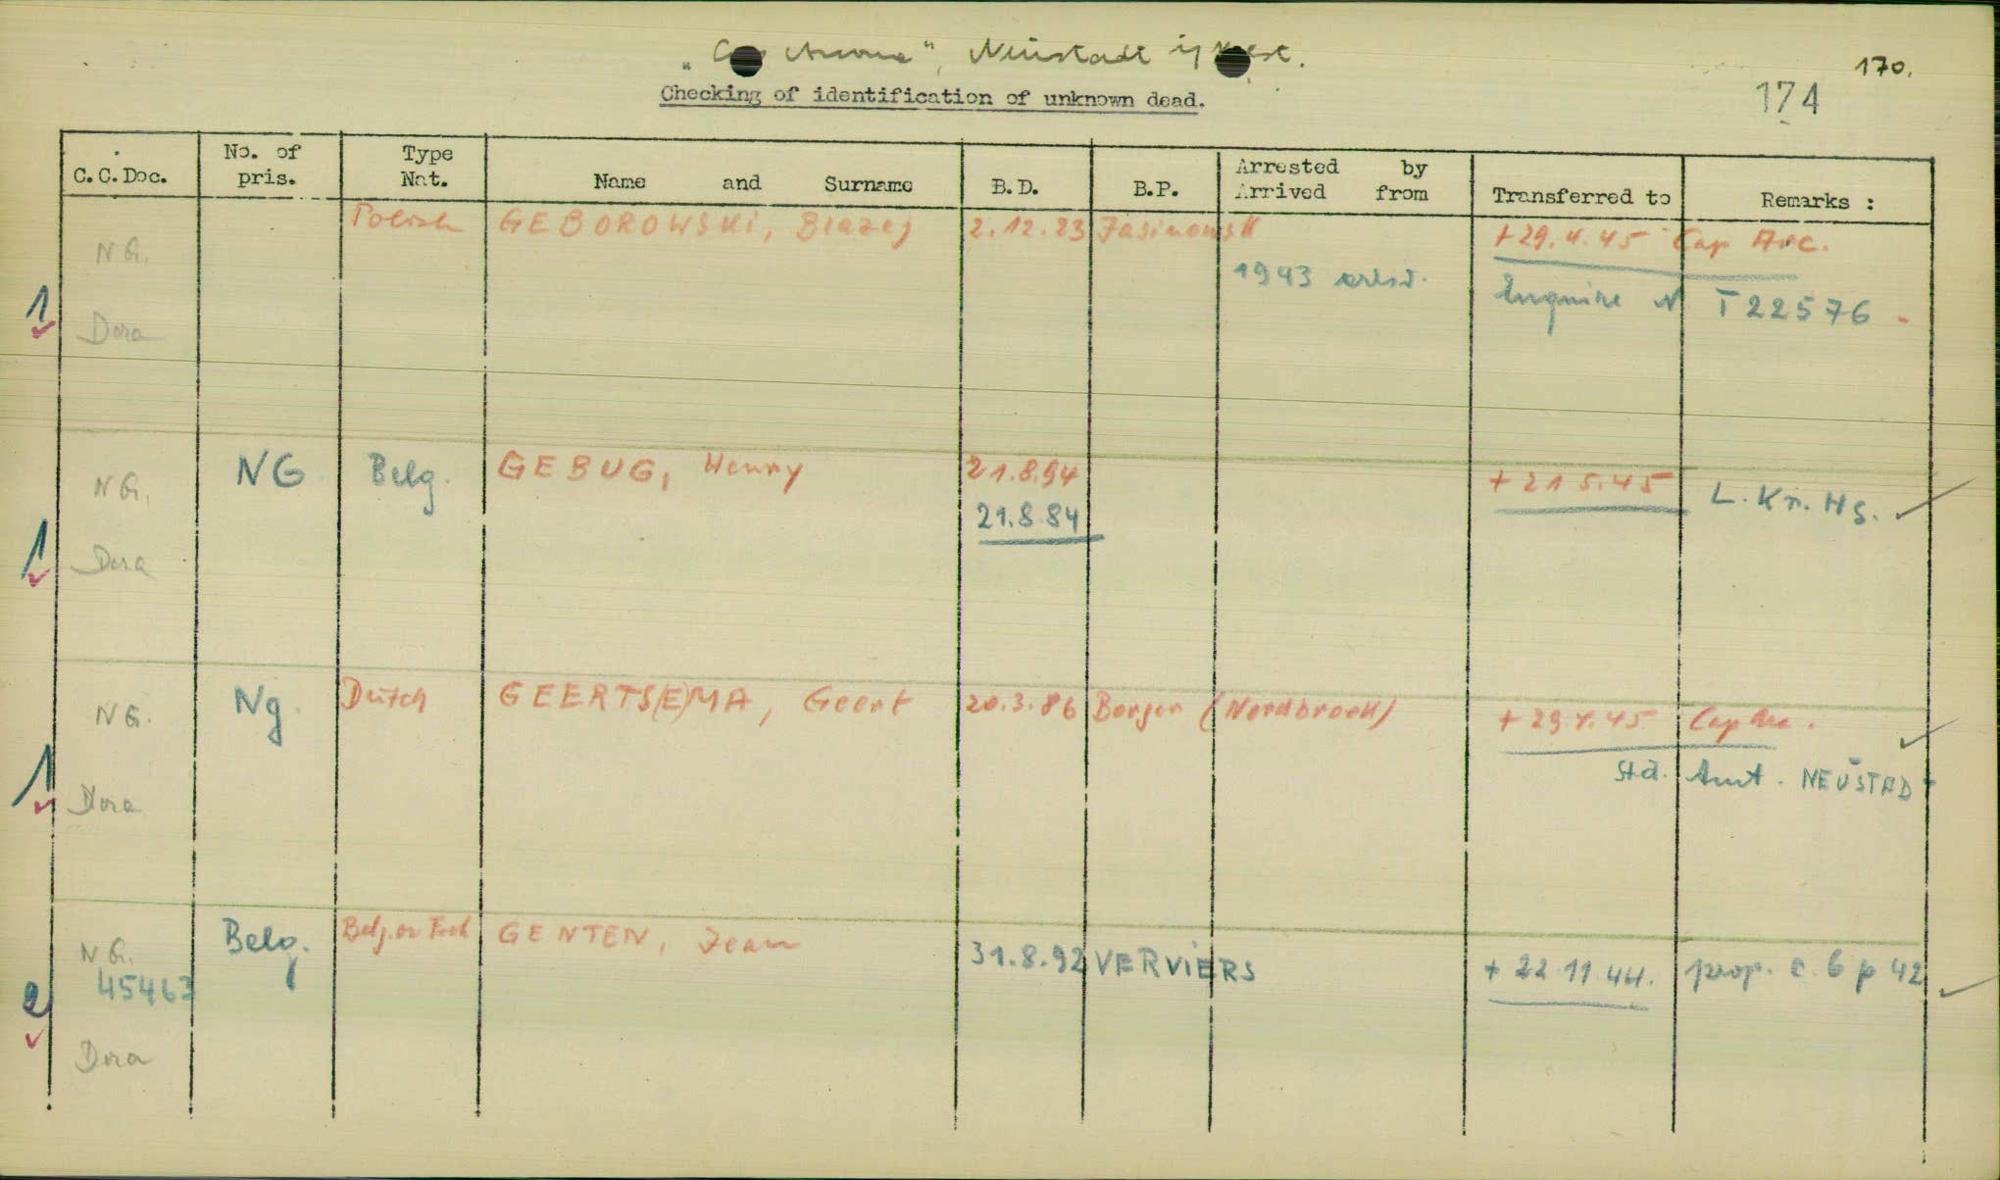 „Cap Arcona", Neustadt i/ Holst.
170.
Checking of identification of unknown dead.
174
C.C.Doc. No. of pris. Type Nat. Name and Surname B.D. B.P. Arrested by Arrived from Transferred to Remarks :
Polish GEBOROWSKI, Blazej 2.12.23 Jasinowsk +29.4.45 Cap Arc.
NG. 1943 arrest.
Enquire N T 22576 -
1 Dora
NG. NG Belg. GEBUG, Henry 21.8.94 + 21 5.45 L. Kr. Hs.
21.8 84
1 Dora
NG. Ng. Dutch GEERTS(E)MA, Geert 20.3.86 Borger (Nordbroek) + 29 4.45 Cap Arc.
Std. Amt. NEUSTAD
1 Dora
NG. Belg. Belg. or Frch GENTEN, Jean 31.8.92 VERVIERS + 22 11 44. prop. c. 6 p 42
45463
2
Dora